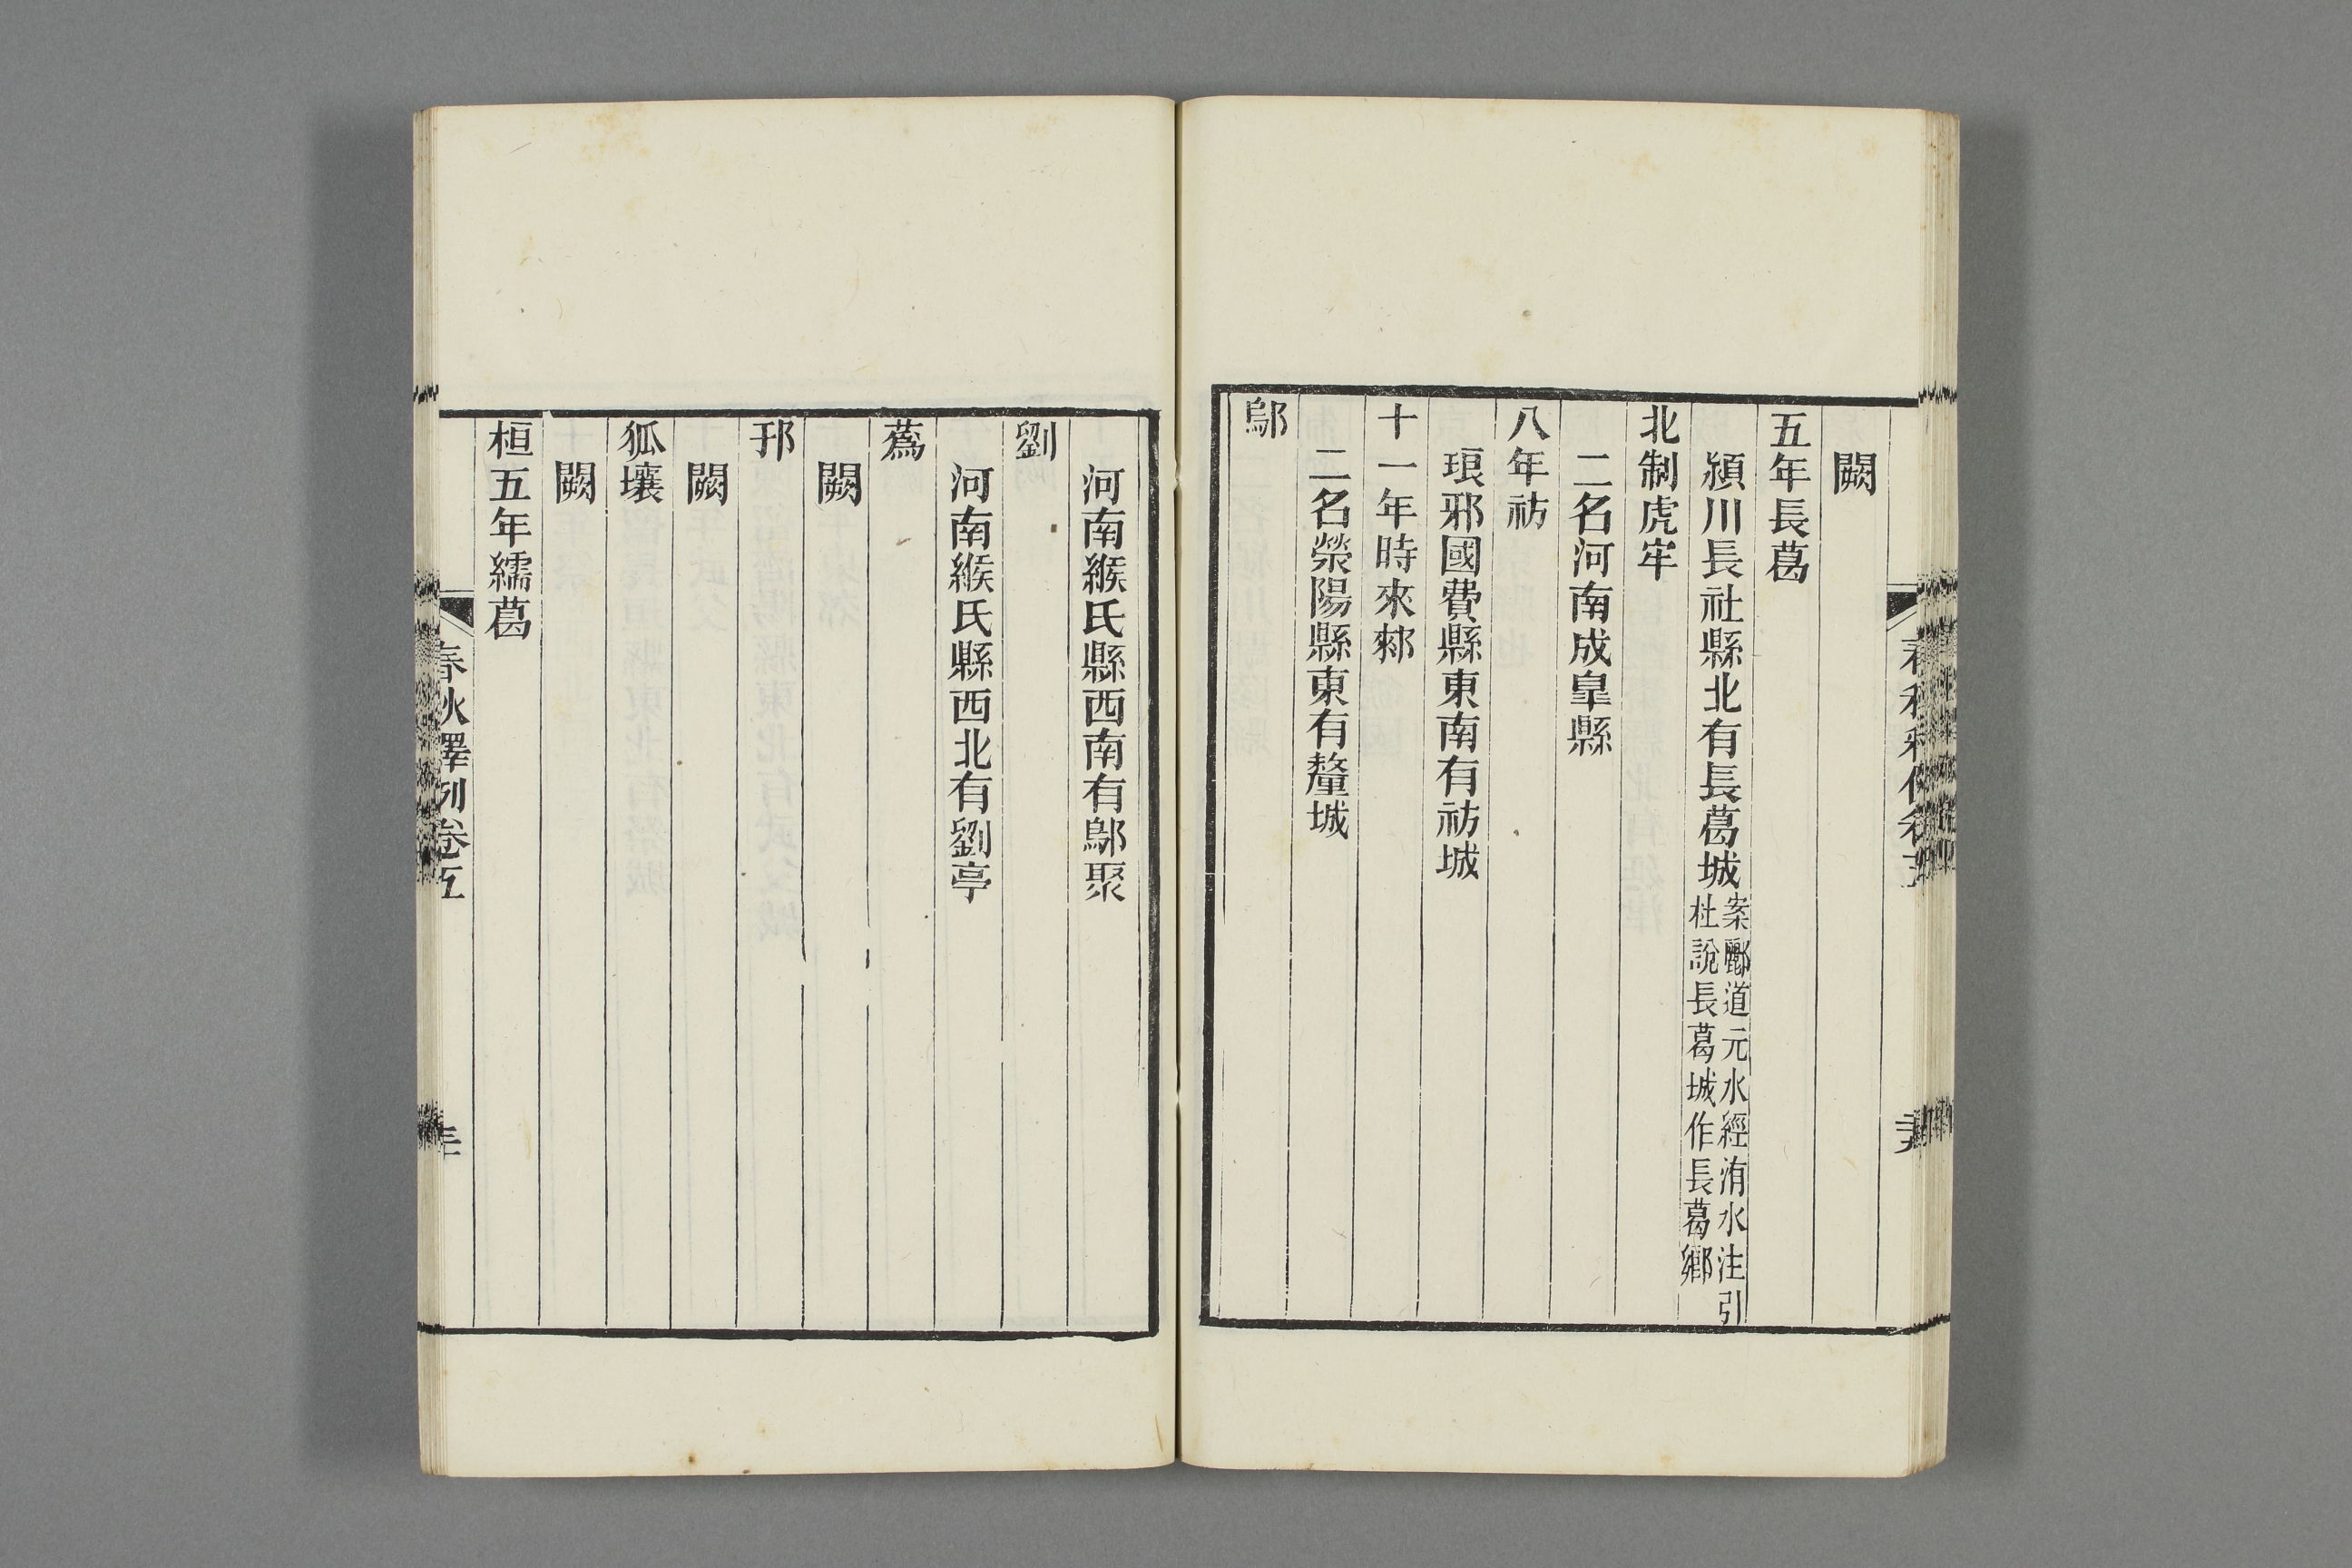 闕
五年長葛
潁川長社縣北有長葛城案酈道元水經洧水注引
杜說長葛城作長葛鄉
北制虎牢
二名河南成皐縣
八年祊
琅邪國費縣東南有祊城
十一年時來郲
二名滎陽縣東有釐城
鄔
河南緱氏縣西南有鄔聚
劉
河南緱氏縣西北有劉亭
蒍
闕
邘
闕
狐壤
闕
桓五年繻葛
春秋釋例卷五